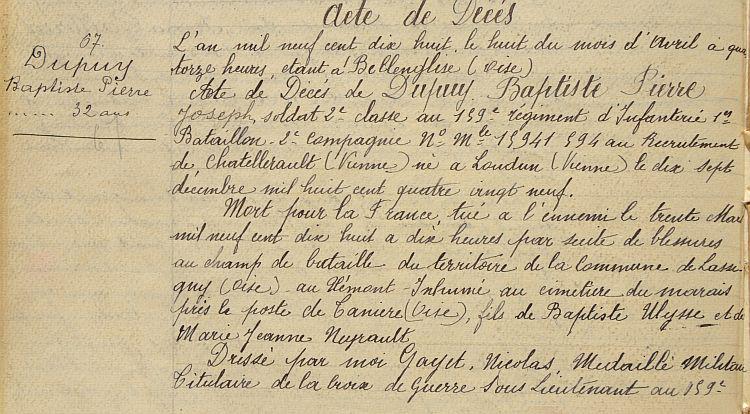 Acte de Décès
67
Dupuy
Baptiste Pierre
32 ans
L'an mil neuf cent dix huit, le huit du mois d'Avril à qua
torze heures, étant à Bellenglise (Oise)
Acte de Décès de Dupuy Baptiste Pierre
Joseph, soldat 2e classe au 159e régiment d'Infanterie 1er
Bataillon - 2e Compagnie No Mle 15941 594 au Recrutement
de Chatellerault (Vienne) né a Loudun (Vienne) le dix sept
décembre mil huit cent quatre vingt neuf.
Mort pour la France, tué a l'ennemi le trente Mars
mil neuf cent dix huit a dix heures par suite de blessures
au champ de bataille du territoire de la Commune de Lasse
guy (Oise) - au Hémont - Inhumé au cimetière du marais
près le poste de Caniere (Oise), fils de Baptiste Ulysse et de
Marie Jeanne Neyrault
Dressé par moi Gayet, Nicolas, Medaillé Militaire
Titulaire de la Croix de Guerre Sous Lieutenant au 159e